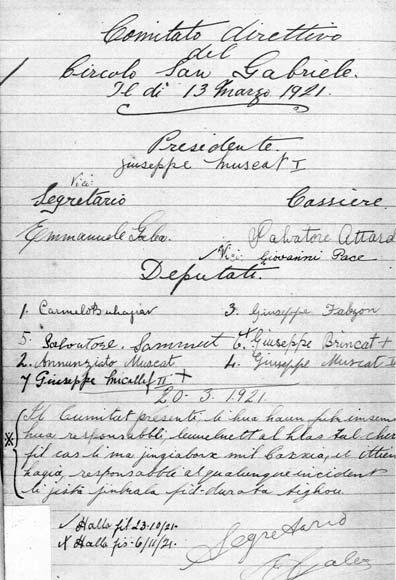 Comitato direttivo
del
Circolo San Gabriele.
Il di 13 Marzo 1921.
Presidente.
Giuseppe Muscat I
Vici
Segretario Cassiere.
Emmanuele Galea. Salvatore Attard
✓ Vici Giovanni Pace
Deputati.
1. Carmelo Buhagiar 3. Giuseppe Fabzon
5. Salvatore Sammut 6. x Giuseppe Brincat +
2. Annunziato Muscat 4. Giuseppe Muscat II
7 Giuseppe Micallef II +
20-3.1921.
Il Cumitat presenti, li hua
hua responsabbli,
fil cas li ma jingiaborx mil Barxia,
responsabbli al qualunque incident
li jista jinhala fid-durata tighou.
✓ Halla fil 23-10/21.
x Halla fis-6/11/21.
Segretario
E Galea